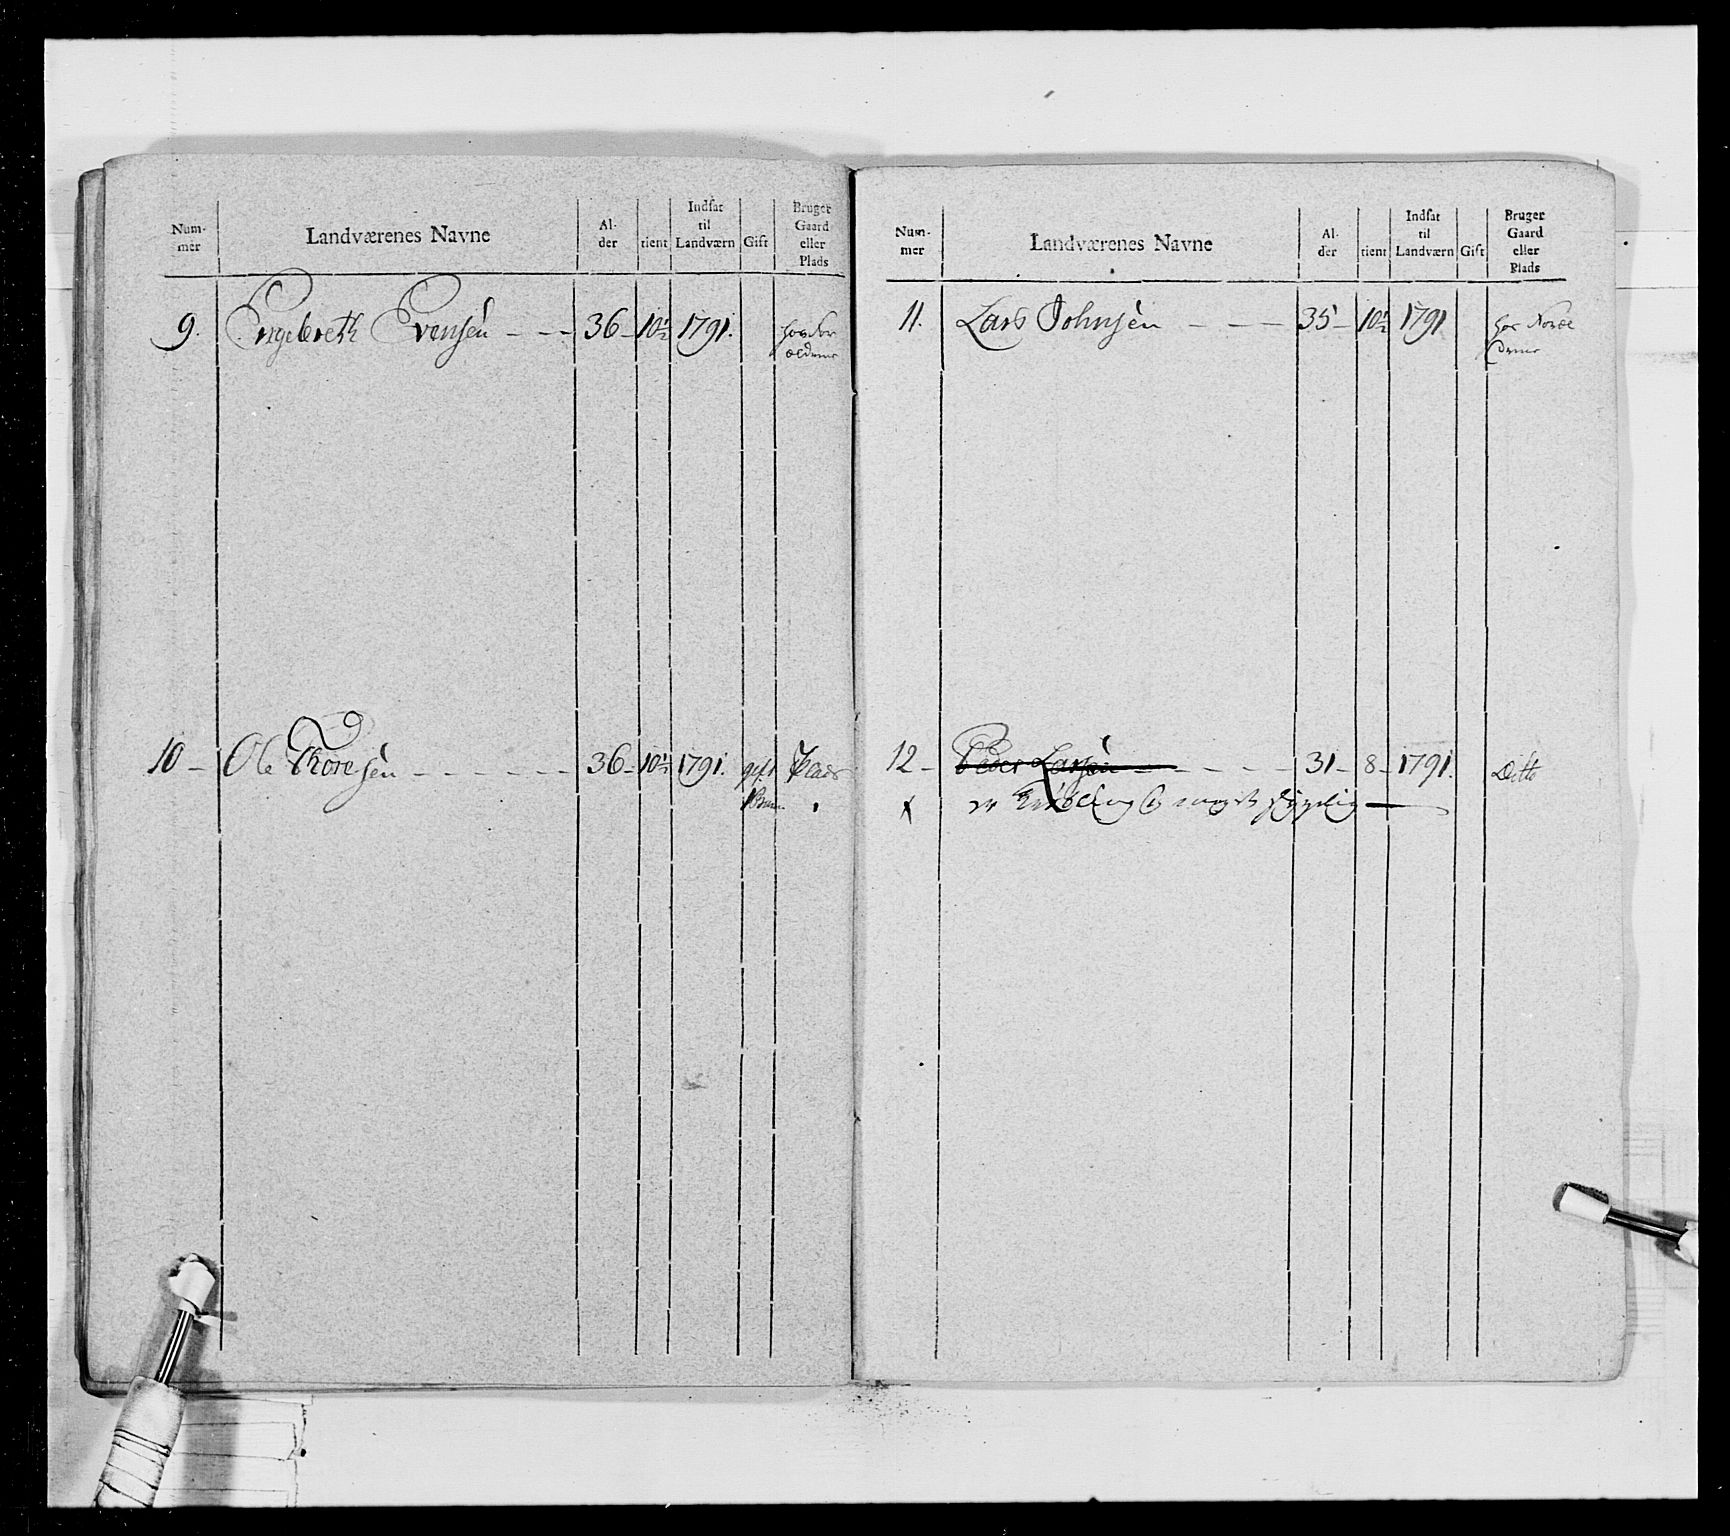 Num-
mer
Landværenes Navne
Al-
der
tient
Indsat
til
Landværn
Gift
Bruger
Gaard
eller
Plads
9. Engebreth Evensen - - - 36 - 10½ 1791. hos For
ældrene
10 - Ole Thoresen - - - - - - 36 - 10½ 1791. gift Plads
1 Barn
Num-
mer
Landværenes Navne
Al-
der
tient
Indsat
til
Landværn
Gift
Bruger
Gaard
eller
Plads
11. Lars Johnsen - - - 35 - 10½ 1791 hos Foræl
drene
12 - Peder Larsen - - - - - 31 - 8 - 1791. Ditto
er Krøbling meget